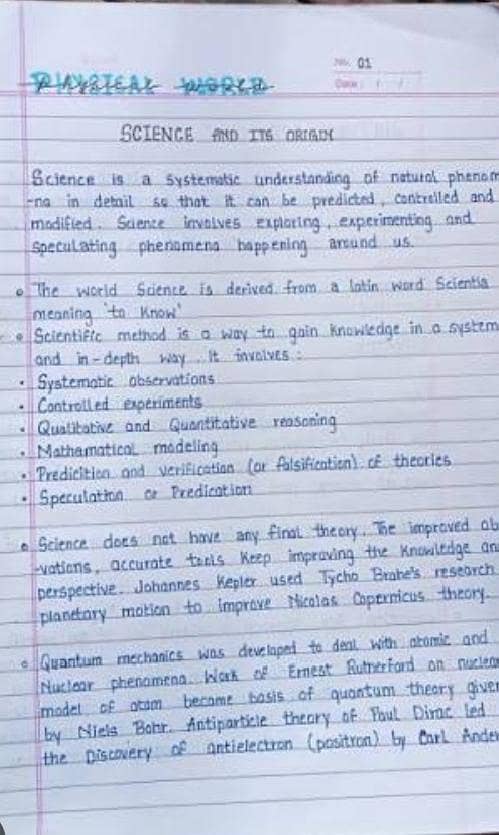 No. 01
Date / /
PHYSICAL WORLD
SCIENCE AND ITS ORIGIN
Science is a systematic understanding of natural phenom
-na in detail so that it can be predicted, controlled and
modified. Science involves exploring, experimenting and
speculating phenomena happening around us.
• The world Science is derived from a latin word Scientia
meaning 'to know'
• Scientific method is a way to gain knowledge in a system
and in-depth way. It involves:
• Systematic observations
• Controlled experiments
• Qualitative and Quantitative reasoning
• Mathematical modeling
• Predicition and verification (or falsification) of theories
• Speculation or Predication
• Science does not have any final theory. The improved ob
-vations, accurate tools keep improving the knowledge an
perspective. Johannes Kepler used Tycho Brahe's research
planetary motion to improve Nicolas Copernicus theory.
• Quantum mechanics was developed to deal with atomic and
Nuclear phenomena. Work of Ernest Rutherford on nuclear
model of atom became basis of quantum theory given
by Niels Bohr. Antiparticle theory of Paul Dirac led
the Discovery of antielectron (positron) by Carl Ander